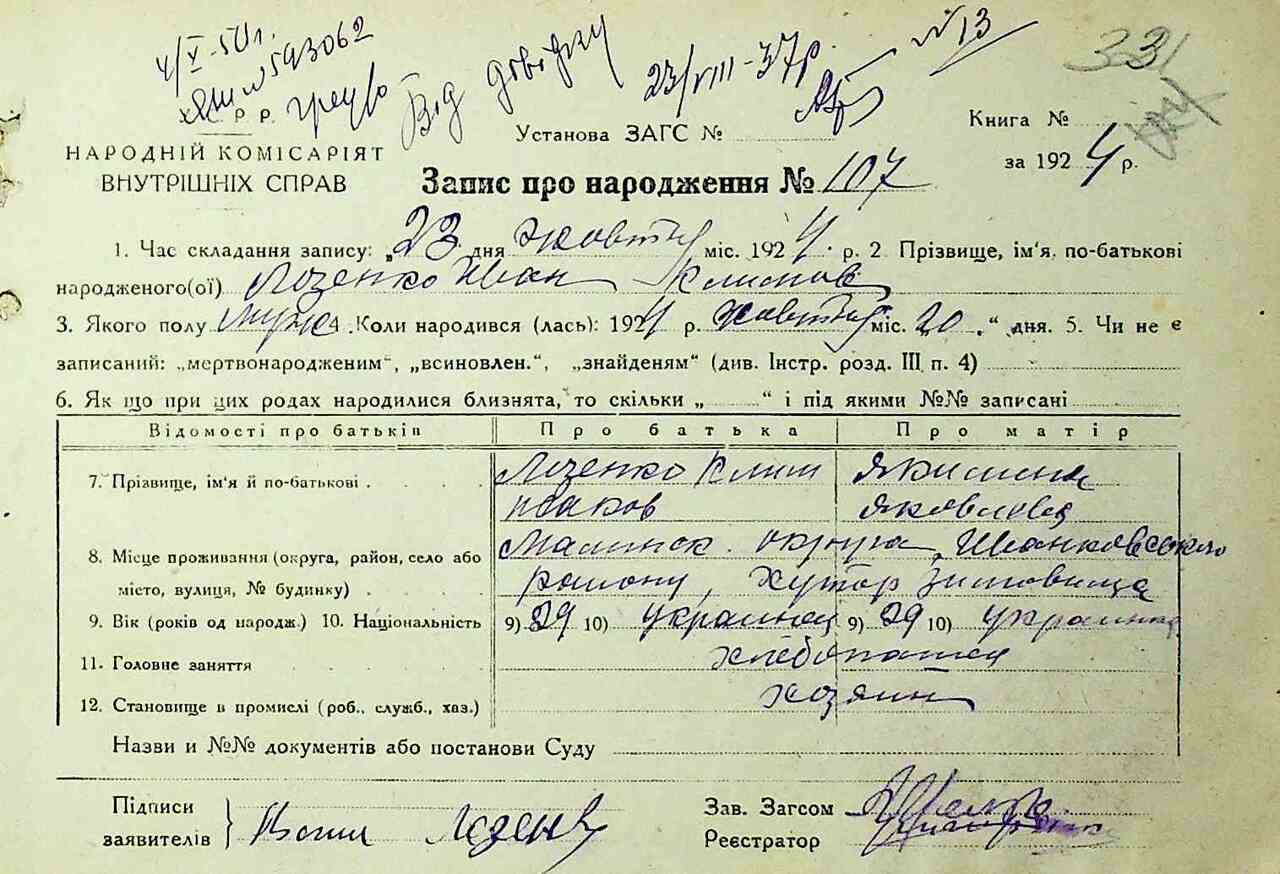 4/V-50 г.
№ 593062
Р. Р.
Від довідку
23/VIII-37р.
№ 13
331
Установа ЗАГС №
Книга №
НАРОДНІЙ КОМІСАРІЯТ
ВНУТРІШНІХ СПРАВ
за 1924 р.
Запис про народження № 107
1. Час складання запису: „23 дня жовтня міс. 1924 р. 2 Прізвище, ім'я, по-батькові
народженого(ої) Лозенко Иван Климов
3. Якого полу муж 4. Коли народився (лась): 1924 р. жовтня міс. 20 „ дня. 5. Чи не є
записаний: „мертвонародженим“, „всиновлен.“, „знайденям“ (див. Інстр. розд. III п. 4)
6. Як що при цих родах народилися близнята, то скільки „ “ і під якими №№ записані
Відомості про батьків Про батька Про матір
7. Прізвище, ім'я й по-батькові Лозенко Клим Якимина
Исаков Яковлева
8. Місце проживання (округа, район, село або Малинск. округа, Иванковського
місто, вулиця, № будинку) району, хутор Зимовища
9. Вік (років од народж.) 10. Національність 9) 29 10) украинец 9) 29 10) украинка
11. Головне заняття хлебопашец
12. Становище в промислі (роб., служб., хаз.) хозяин
Назви и №№ документів або постанови Суду
Підписи
заявителів
Зав. Загсом
Реєстратор